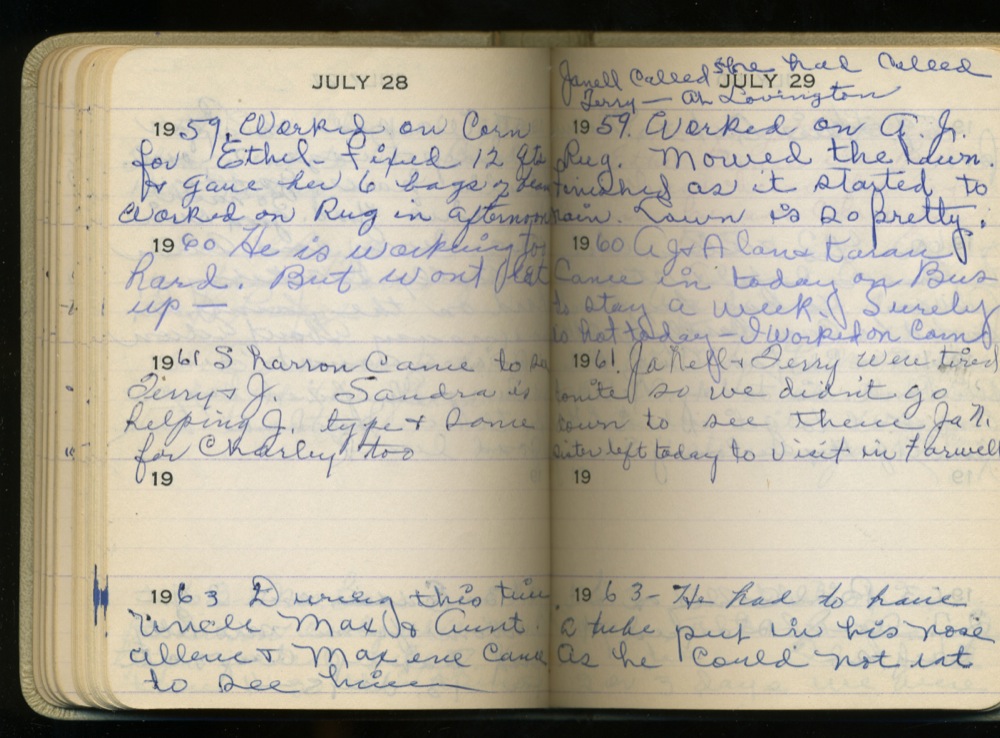 JULY 28
1959. Worked on Corn
for Ethel - Fixed 12 qts
& gave her 6 bags of
Worked on Rug in afternoon
1960 He is working too
hard. But wont let
up —
1961 Sharron Came to see
Terry & J. Sandra is
helping J. type & some
for Charley too
19
1963 During this time
Uncle Max & Aunt
allene & Maxene Came
to see him
Janell Called She had Called
Terry — At Lovington
JULY 29
1959. Worked on A.J.
Rug. Mowed the lawn.
finished as it started to
rain. Lawn is so pretty.
1960 AJ & Alan & Karan
Came in today on Bus
to stay a week. Surely
is hot today — I worked on Corn
1961. JaNell & Terry were tired
tonite so we didn't go
down to see them Ja N.
sister left today to visit in Farwell
19
1963 - He had to have
a tube put in his nose
as he could not eat